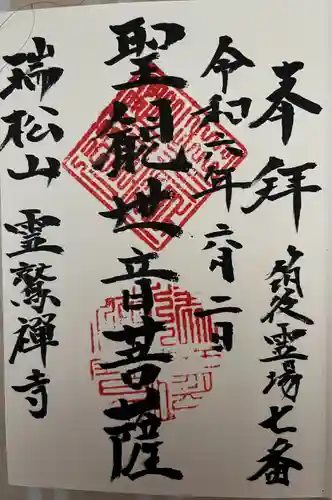 奉拝
筑後霊場七番
令和六年
六月二日
聖観地音菩薩
瑞松山 霊鷲禅寺